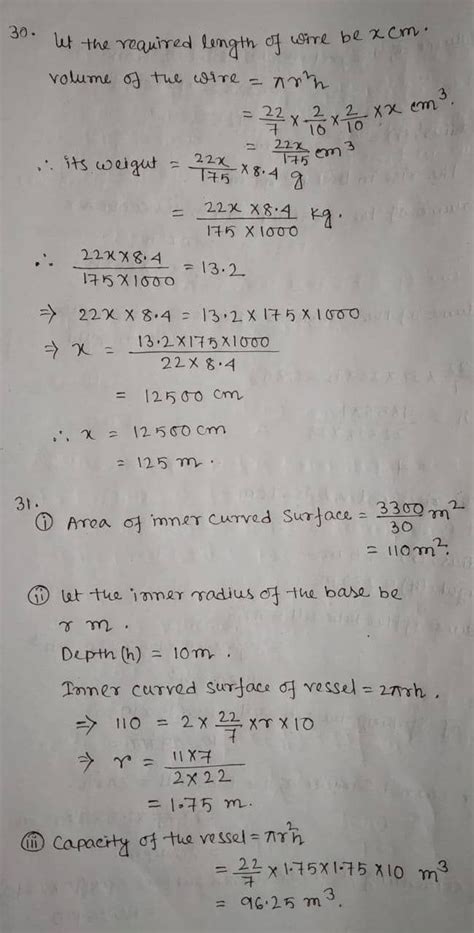 30. Let the required length of wire be x cm.
volume of the wire = πr²h
= 22/7 × 2/10 × 2/10 × x cm³.
= 22x/175 cm³
∴ its weight = 22x/175 × 8.4 g
= 22x × 8.4 / 175 × 1000 kg.
∴ 22x × 8.4 / 175 × 1000 = 13.2
⇒ 22x × 8.4 = 13.2 × 175 × 1000
⇒ x = 13.2 × 175 × 1000 / 22 × 8.4
= 12500 cm
∴ x = 12500 cm
= 125 m.
31.
(i) Area of inner curved surface = 3300/30 m²
= 110 m².
(ii) Let the inner radius of the base be
r m.
Depth (h) = 10m.
Inner curved surface of vessel = 2πrh.
⇒ 110 = 2 × 22/7 × r × 10
⇒ r = 11 × 7 / 2 × 22
= 1.75 m.
(iii) Capacity of the vessel = πr²h
= 22/7 × 1.75 × 1.75 × 10 m³
= 96.25 m³.